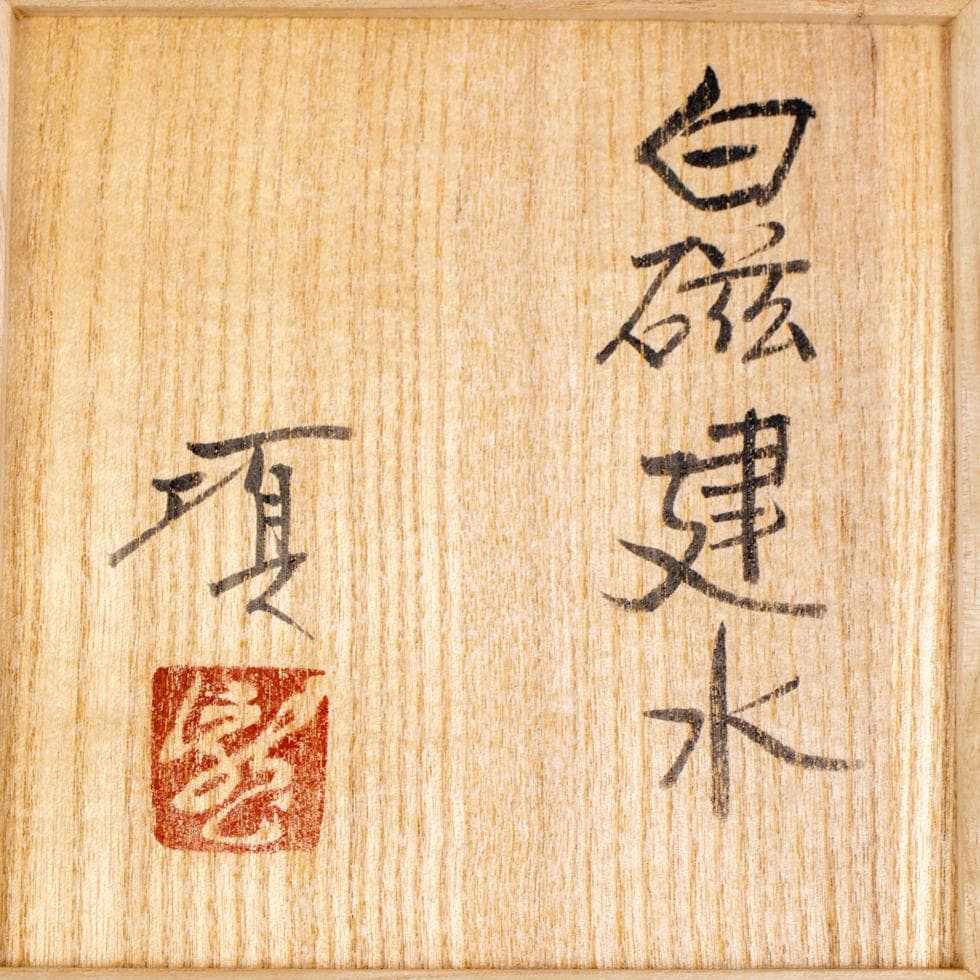 白磁建水
項